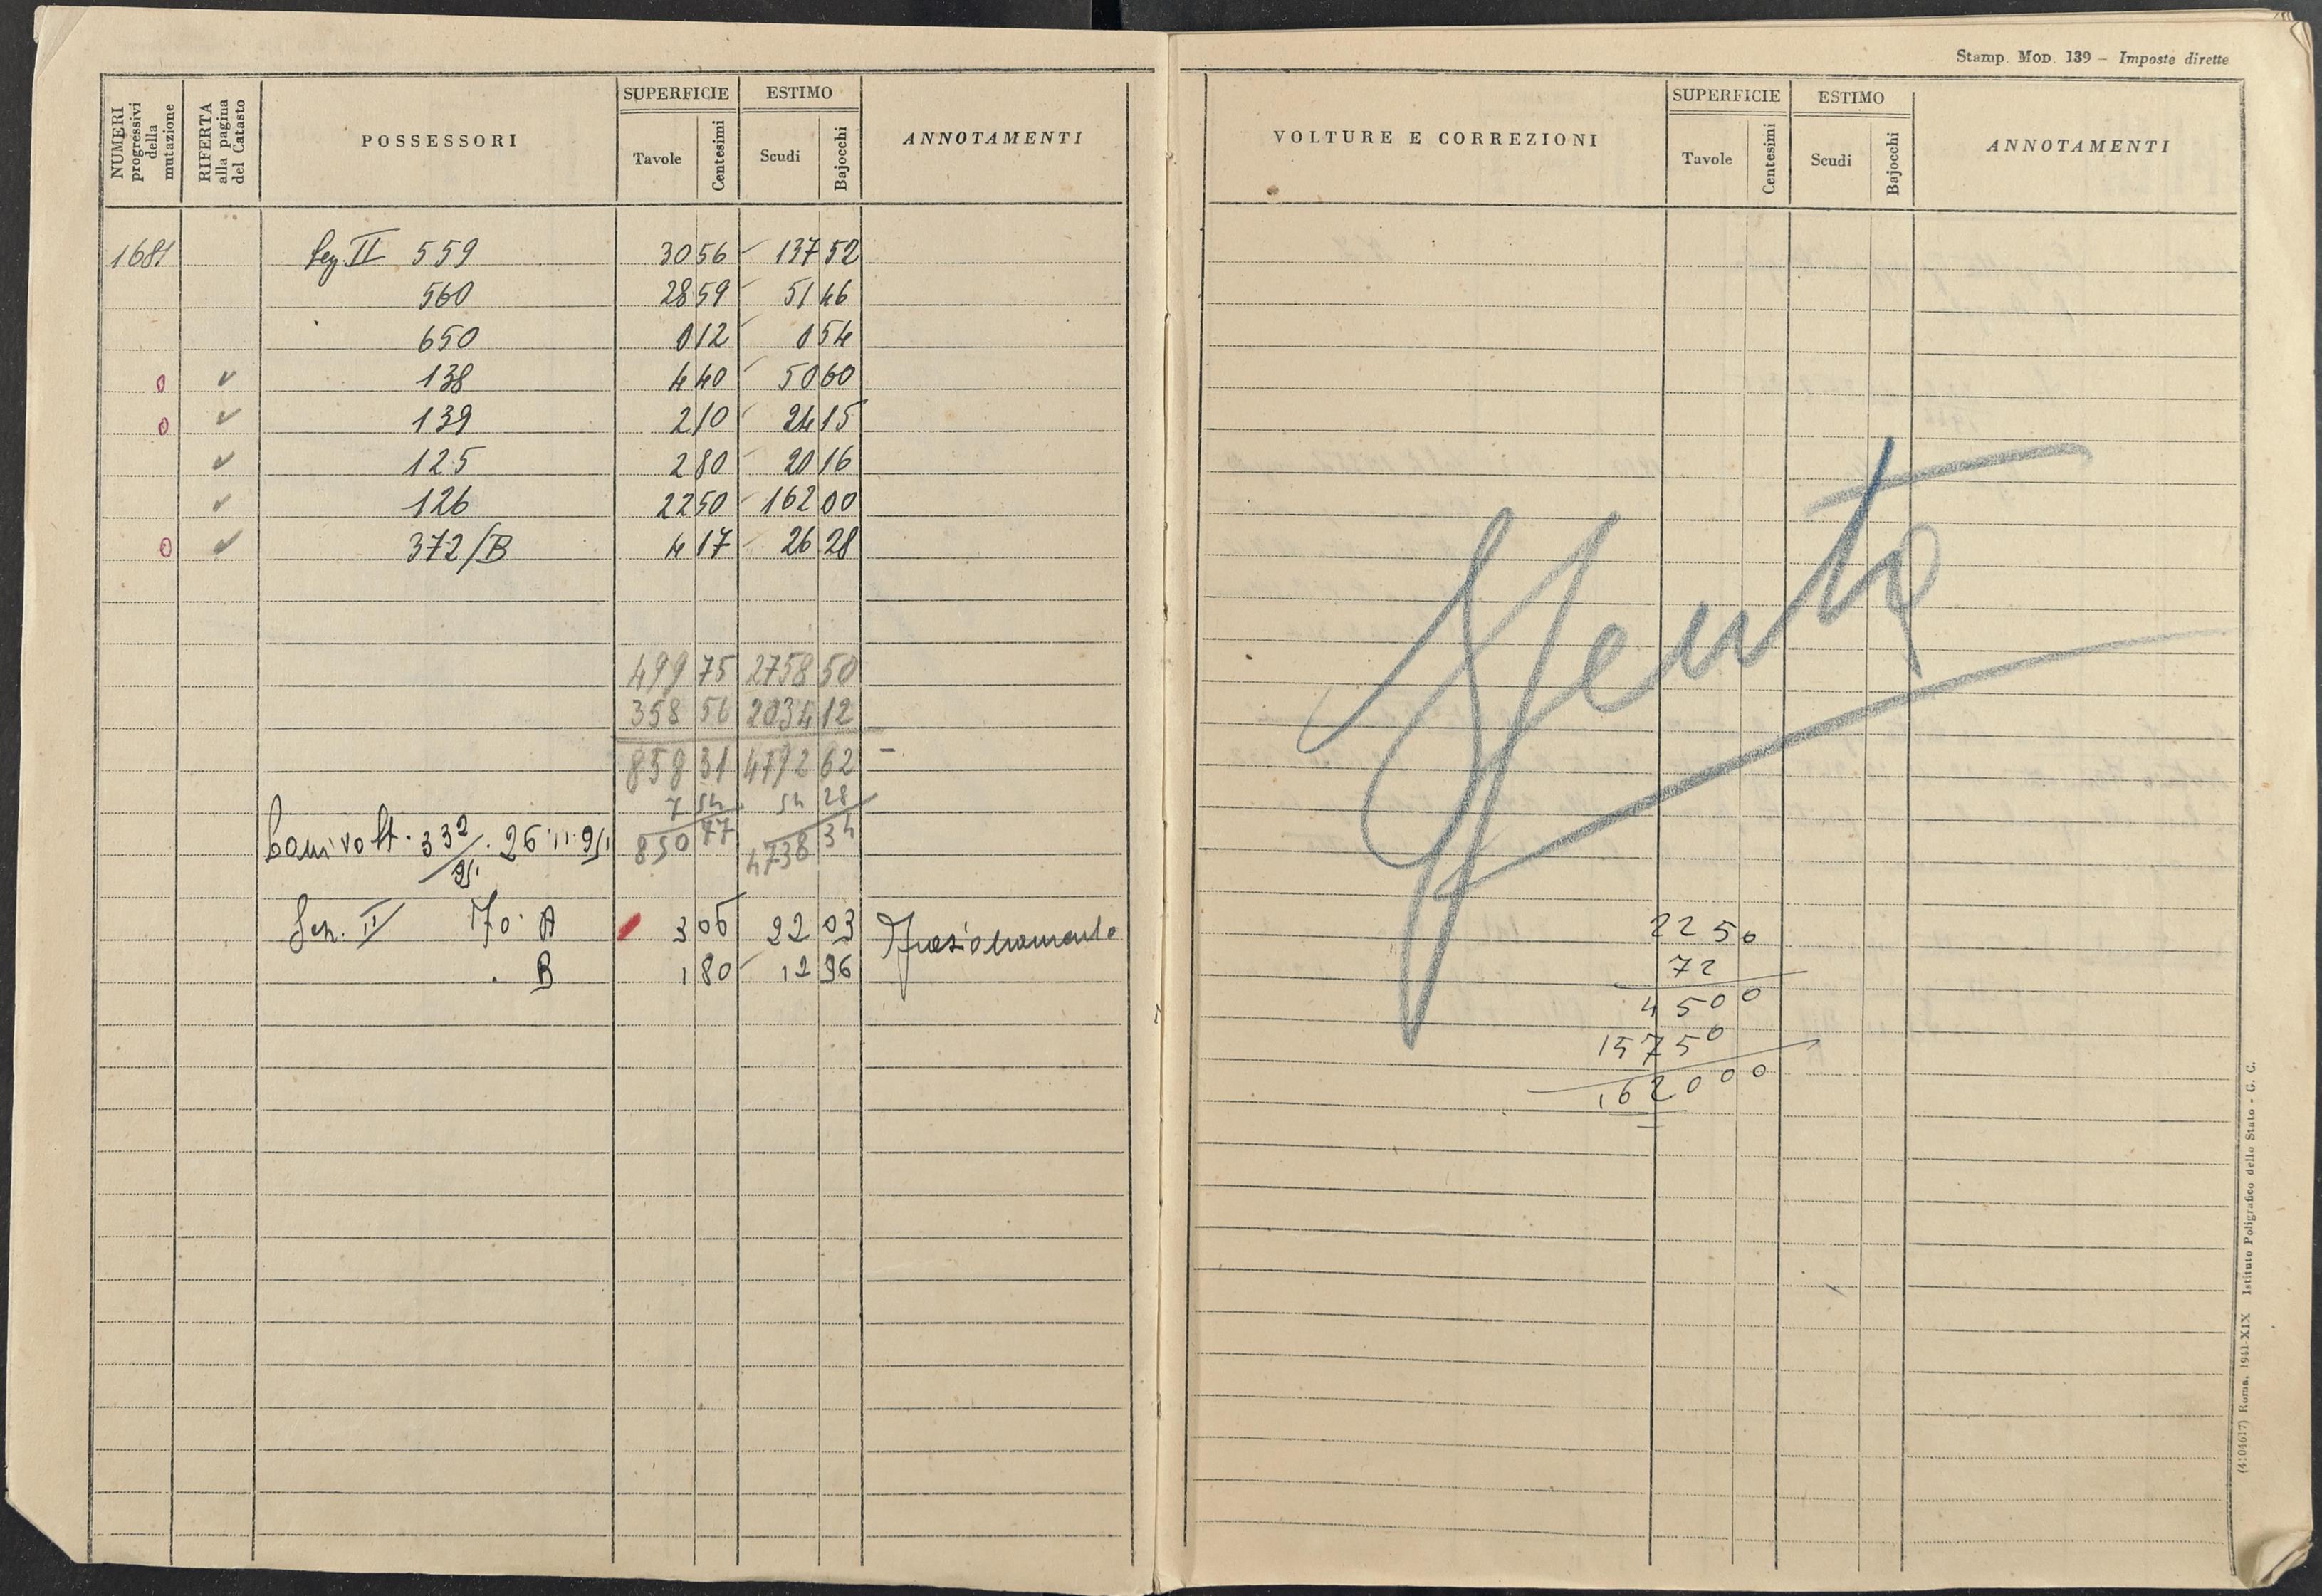 NUMERI progressivi della mutazione
RIFERTA alla pagina del Catasto
POSSESSORI
SUPERFICIE
Tavole
Centesimi
ESTIMO
Scudi
Bajocchi
ANNOTAMENTI
1681 Sez II 559 30 56 137 52
560 28 59 51 46
650 0 12 0 54
0 ✓ 138 4 40 50 60
0 ✓ 139 2 10 24 15
✓ 125 2 80 20 16
✓ 126 22 50 162 00
0 ✓ 372/B 4 17 26 28
499 75 2758 50
358 56 2034 12
858 31 4792 62 –
7 54 54 28
332/51. 26.11.951 850 77 4738 34
Sez. II 70. A 3 06 22 03 Frazionamento
. B 1 80 12 96
Stamp. Mod. 139 – Imposte dirette
VOLTURE E CORREZIONI
SUPERFICIE
Tavole
Centesimi
ESTIMO
Scudi
Bajocchi
ANNOTAMENTI
2250
72
4500
15750
162000
(4104617) Roma, 1941-XIX Istituto Poligrafico dello Stato - G. C.